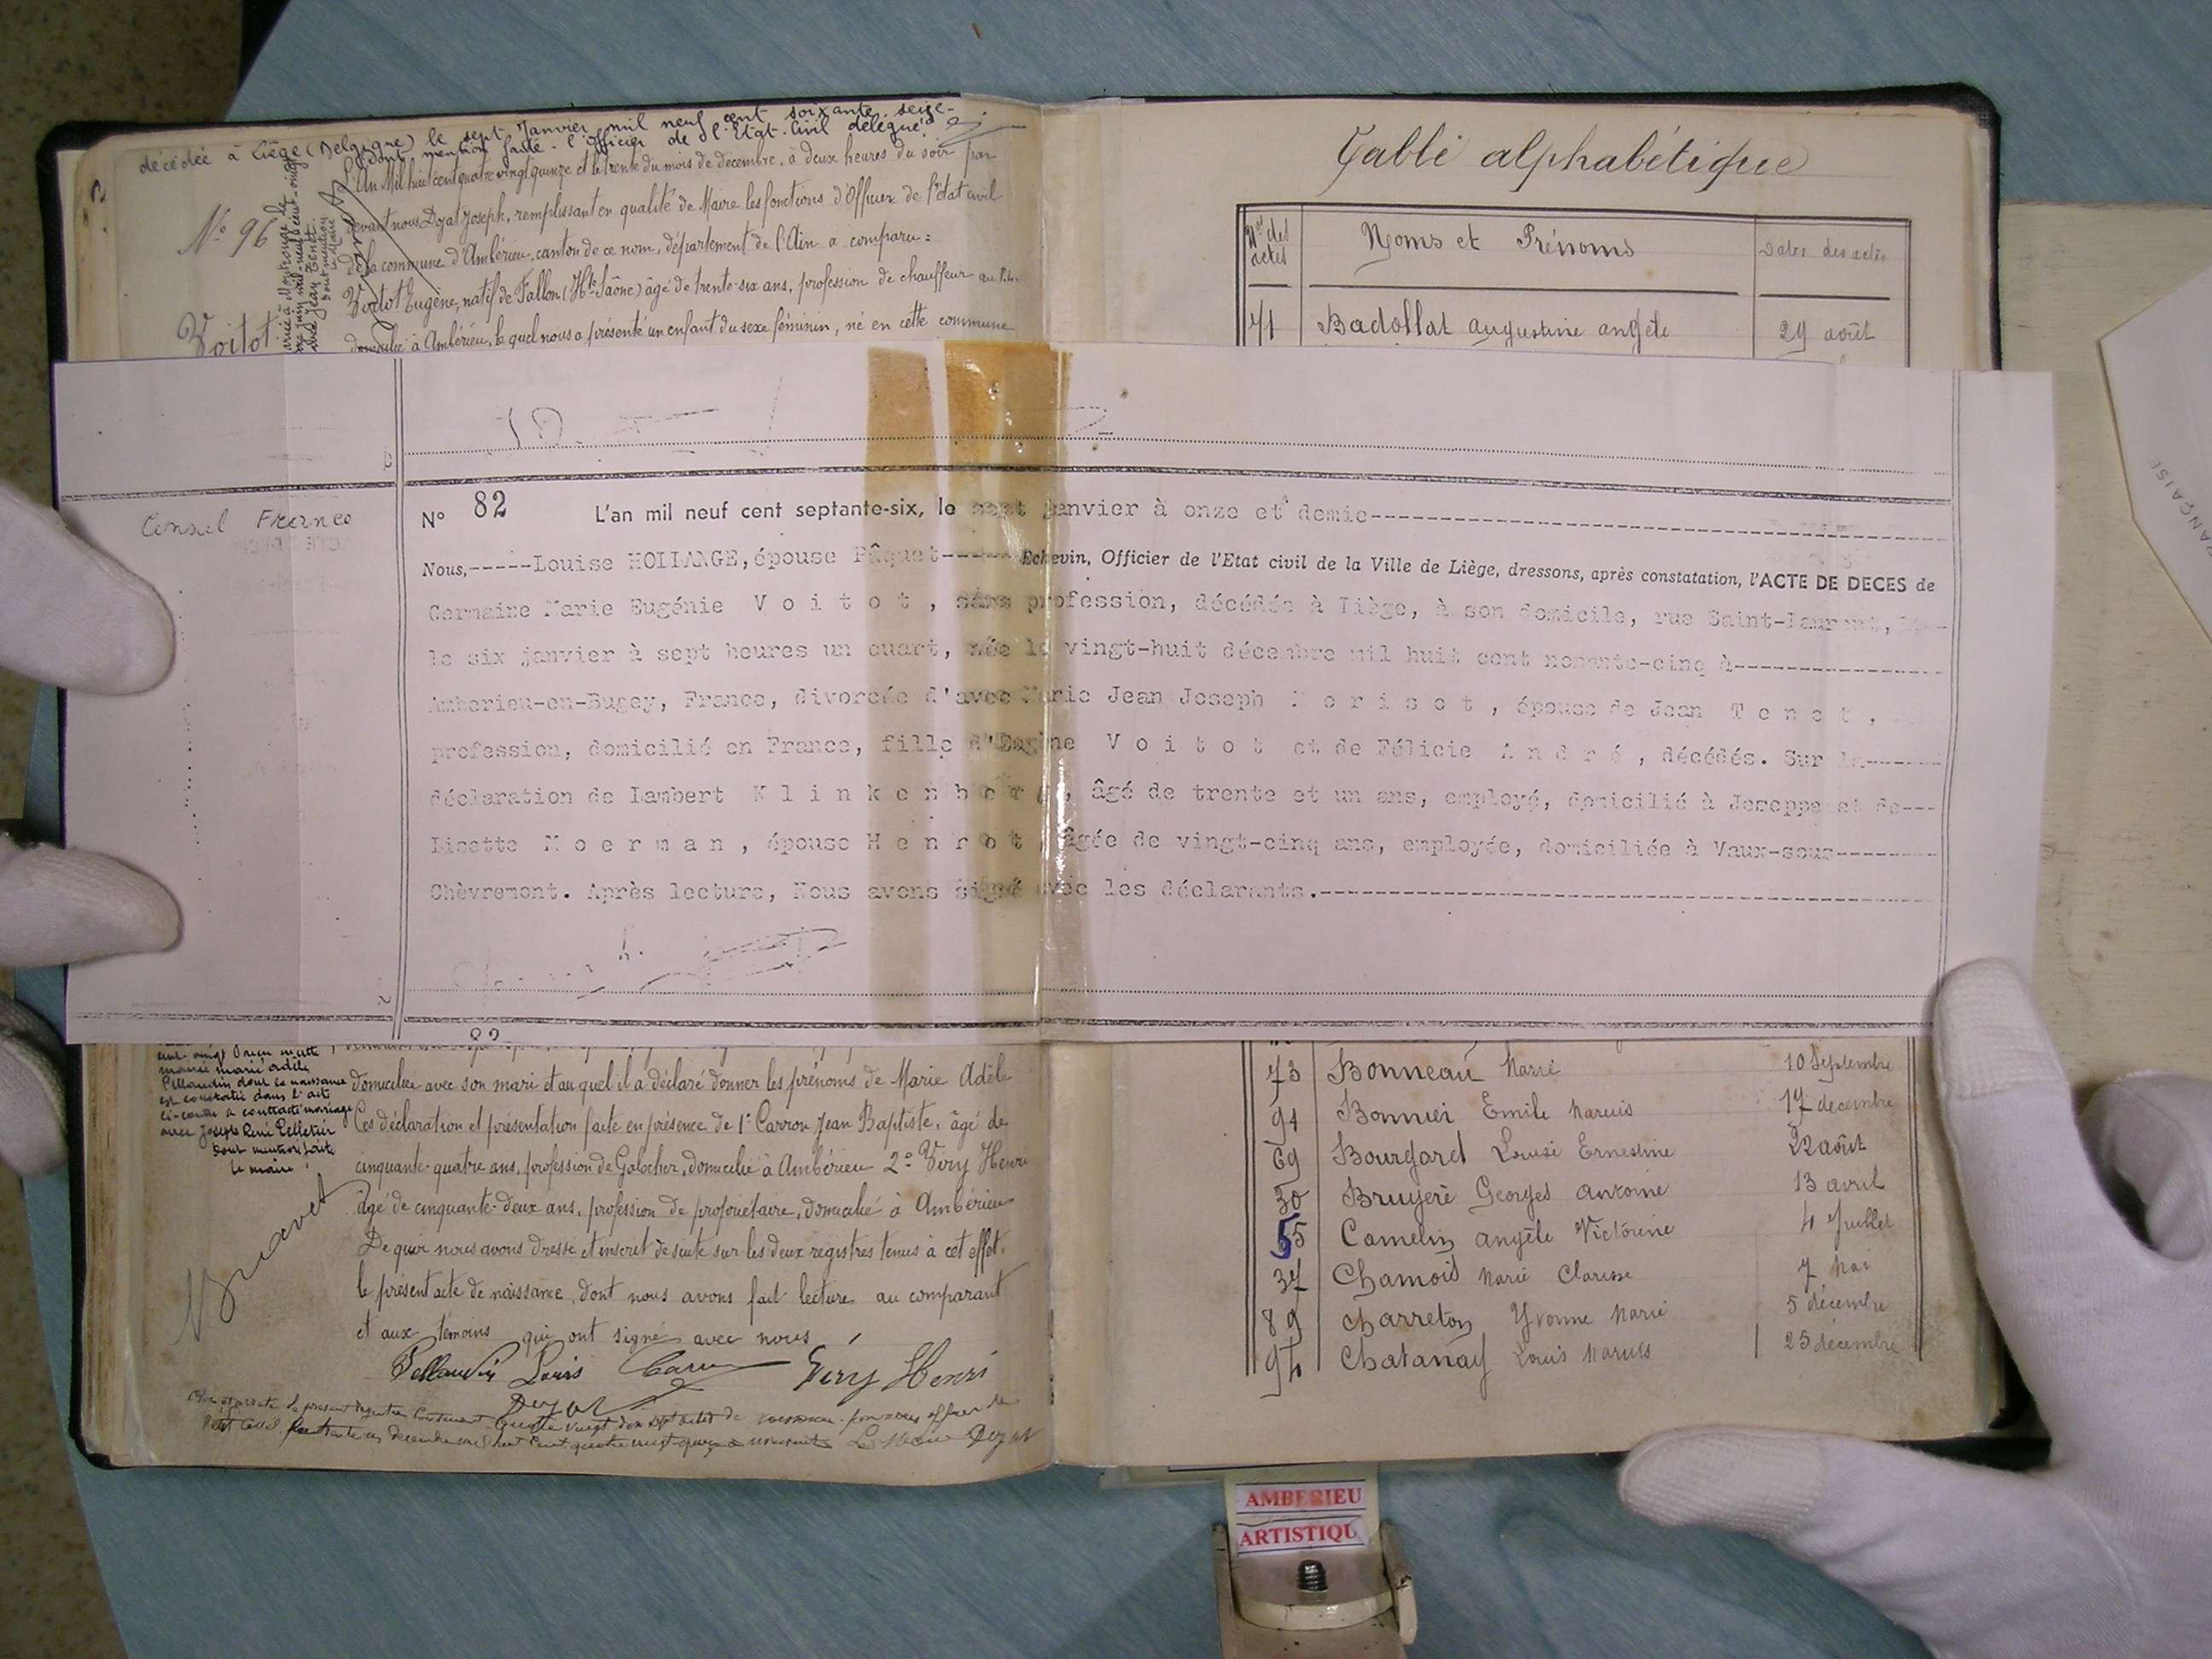 décédée à Liège (Belgique) le sept Janvier mil neuf cent soixante seize
dont mention faite - l'Officier de l'Etat-Civil délégué
L'An Mil huit cent quatre vingt quinze et le trente du mois de décembre, à deux heures du soir par
devant nous Dozat Joseph, remplissant en qualité de Maire les fonctions d'Officier de l'état civil
de la commune d'Ambérieu, canton de ce nom, département de l'Ain a comparu :
Voitot Eugène, natif de Fallon (Hte Saône) âgé de trente-six ans, profession de chauffeur au
domicilié à Ambérieu, lequel nous a présenté un enfant du sexe féminin, né en cette commune
No 96
Voitot
Consul France
No 82 L'an mil neuf cent septante-six, le sept janvier à onze et demie
Nous,-----Louise HOLLANGE, épouse Pâquet------Echevin, Officier de l'Etat civil de la Ville de Liège, dressons, après constatation, l'ACTE DE DECES de
Germaine Marie Eugénie V o i t o t , sans profession, décédée à Liège, à son domicile, rue Saint-Laurent,
le six janvier à sept heures un quart, née le vingt-huit décembre mil huit cent nonante-cinq à
Amberieu-en-Bugey, France, divorcée d'avec Marie Jean Joseph M o r i s o t , épouse de Jean T e n e t ,
profession, domicilié en France, fille d'Eugène V o i t o t et de Félicie A n d r é , décédés. Sur la
déclaration de Lambert K l i n k e n b e r g , âgé de trente et un ans, employé, domicilié à Jemeppe et de
Lisette M o e r m a n , épouse H e n r o t , âgée de vingt-cinq ans, employée, domiciliée à Vaux-sous
Chèvremont. Après lecture, Nous avons signé avec les déclarants.
82
mousse marie adèle
Pellaudin dont la naissance
est constatée dans l'acte
ci-contre a contracté mariage
avec Joseph René Pelletier
Dont mention faite
le maire
domiciliée avec son mari et auquel il a déclaré donner les prénoms de Marie Adèle
Ces déclaration et présentation faite en présence de 1° Carron Jean Baptiste, âgé de
cinquante-quatre ans, profession de Galocher, domicilié à Ambérieu 2° Véry Henri
âgé de cinquante-deux ans, profession de propriétaire, domicilié à Ambérieu
De quoi nous avons dressé et inscrit de suite sur les deux registres tenus à cet effet,
le présent acte de naissance, dont nous avons fait lecture au comparant
et aux témoins qui ont signé avec nous
Pellaudin Louis Carron Véry Henri
Dozat
Table alphabétique
Nos des actes Noms et Prénoms Dates des actes
71 Badollat Augustine Angèle 29 août
73 Bonneau Marie 10 Septembre
91 Bonnier Emile Marius 17 décembre
69 Bourgard Louise Ernestine 22 août
30 Bruyère Georges Antoine 13 avril
55 Camelin Angèle Victorine 4 Juillet
37 Chamois Marie Clarisse 7 Mai
89 Charreton Yvonne Marie 5 décembre
94 Chatanay Louis Marius 25 décembre
AMBERIEU
ARTISTIQU